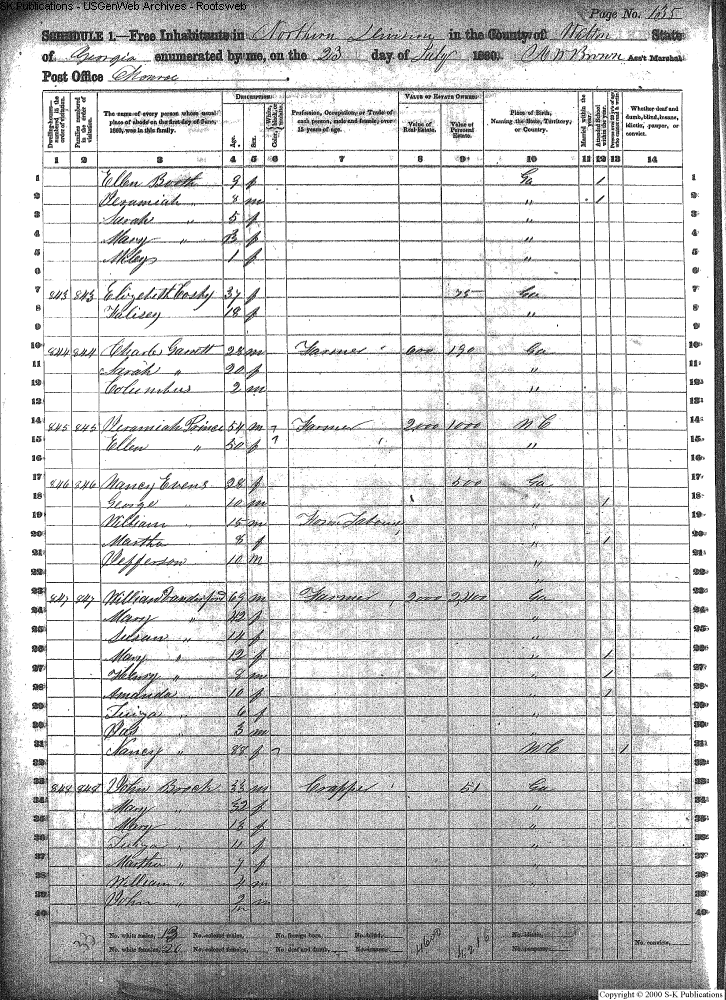 S-K Publications - USGenWeb Archives - Rootsweb
Page No. 135
SCHEDULE 1.—Free Inhabitants in Northern Division in the County of Walton State
of Georgia enumerated by me, on the 23 day of July 1860. Brown Ass't Marshal.
Post Office Monroe
Dwelling-houses— numbered in the order of visitation.
Families numbered in the order of visitation.
The name of every person whose usual place of abode on the first day of June, 1860, was in this family.
DESCRIPTION.
Age.
Sex.
Color, White, black, or mulatto.
Profession, Occupation, or Trade of each person, male and female, over 15 years of age.
VALUE OF ESTATE OWNED.
Value of Real Estate.
Value of Personal Estate.
Place of Birth, Naming the State, Territory, or Country.
Married within the year.
Attended School within the year.
Whether deaf and dumb, blind, insane, idiotic, pauper, or convict.
1 2 3 4 5 6 7 8 9 10 11 12 13 14
1 Ellen Booth 9 f Ga 1 1
2 Jeramiah " 8 m " 1
Sarah " 5 f "
Mary " 3 f "
1 f "
843 843 Elizebeth Cosby 37 f 75 Ga
18 f "
844 844 Charls Garrett 28 m Farmer 600 130 Ga
Sarah " 20 f "
Columbus 2 m "
845 845 Jeramiah Prince 54 m Farmer 2000 1000 N C
Ellen " 50 f "
846 846 Nancy Evens 28 f 500 Ga
George 10 m " 1
William 15 m Farm Laborer "
Martha 8 f " 1
Jefferson 10 m "
847 847 William 69 m Farmer 2000 2,400 Ga
Mary " 42 f "
Susan " 14 f "
Mary " 12 f " 1
Henry " 8 m " 1
Amanda 10 f " 1
6 f "
3 m "
Nancy " 88 f N C 1
848 848 John 33 m Crapper 51 Ga
Mary " 32 f "
Mary 13 f "
11 f "
Martha " 7 f "
William " 4 m "
John " m "
No. white males, 13 No. colored males, No. foreign born, No. blind, No. idiotic,
No. white females, 20 No. colored females, No. deaf and dumb, No. insane, No. paupers, No. convicts,
4600 4,216
Copyright © 2000 S-K Publications